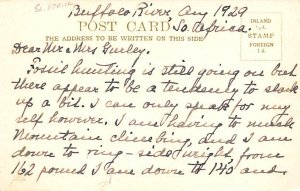 So. Africa
Buffalo River Aug 1929
So Africa.
POST CARD
THE ADDRESS TO BE WRITTEN ON THIS SIDE
INLAND
½d
STAMP
FOREIGN
1d
Dear Mr & Mrs Gurley.
Fossil hunting is still going on but
there appear to be a tendency to slack
up a bit. I can only speak for my
self however. I am having to much
Mountain climbing, and I am
down to ring-side weight from
162 pound I am down to 145 and